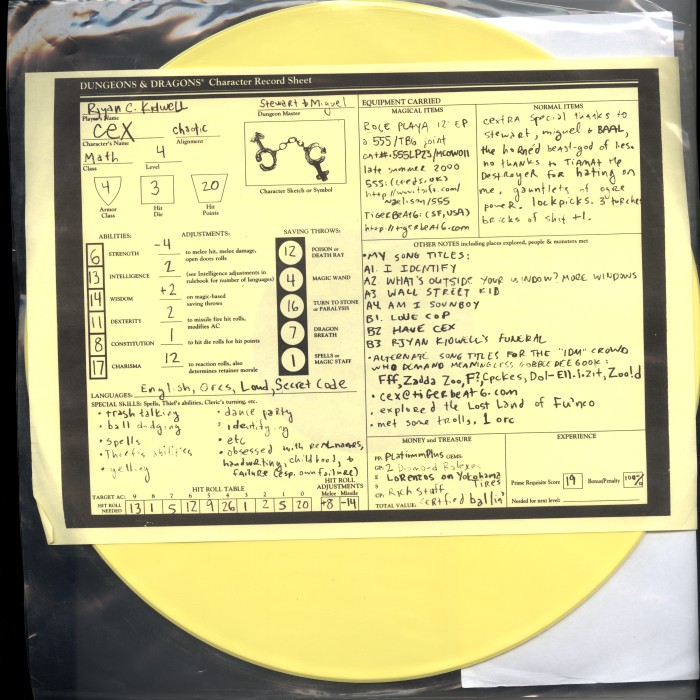 DUNGEONS & DRAGONS® Character Record Sheet
Rjyan C. Kidwell
Player's Name
Stewart & Miguel
Dungeon Master
cex
Character's Name
chaotic
Alignment
Math
Class
4
Level
4
Armor Class
3
Hit Dice
20
Hit Points
Character Sketch or Symbol
ABILITIES:
ADJUSTMENTS:
6 STRENGTH -4 to melee hit, melee damage, open doors rolls
13 INTELLIGENCE 2 (see Intelligence adjustments in rulebook for number of languages)
14 WISDOM +2 on magic-based saving throws
11 DEXTERITY 2 to missile fire hit rolls, modifies AC
8 CONSTITUTION 1 to hit die rolls for hit points
17 CHARISMA 12 to reaction rolls, also determines retainer morale
SAVING THROWS:
12 POISON or DEATH RAY
4 MAGIC WAND
16 TURN TO STONE or PARALYSIS
7 DRAGON BREATH
1 SPELLS or MAGIC STAFF
LANGUAGES: English, Orcs, Loud, Secret Code
SPECIAL SKILLS: Spells, Thief's abilities, Cleric's turning, etc.
• trash talking
• ball dodging
• spells
• Thief's abilities
• yelling
• dance party
• identifying
• etc
• obsessed with real names,
handwriting, childhood, +
failure (esp. own failure)
HIT ROLL TABLE
TARGET AC: 9 8 7 6 5 4 3 2 1 0
HIT ROLL NEEDED: 13 1 5 12 9 26 1 2 5 20
HIT ROLL ADJUSTMENTS
Melee Missile
+8 -14
EQUIPMENT CARRIED
MAGICAL ITEMS
ROLE PLAYA 12" EP
a 555/TB6 joint
cat#:555LP23/MEOW011
late summer 2000
555: (Leeds, UK)
TigerBeat6: (SF, USA)
http://tigerbeat6.com
NORMAL ITEMS
extra special thanks to
stewart, miguel & BAAL,
the horned beast-god of
no thanks to TIAMAT the
Destroyer for hating on
me, gauntlets of ogre
power. lockpicks. 3 torches
bricks of shit +1.
OTHER NOTES including places explored, people & monsters met
•MY SONG TITLES:
A1. I IDENTIFY
A2 WHAT'S OUTSIDE YOUR WINDOW? MORE WINDOWS
A3 WALL STREET KID
A4 AM I SOUNBOY
B1. LOVE COP
B2 HAVE CEX
B3 RJYAN KIDWELL'S FUNERAL
•ALTERNATE SONG TITLES FOR THE "IDM" CROWD
WHO DEMAND MEANINGLESS GOBBLEDEEGOOK:
Fff, Zadda Zoo,
• cex@tigerbeat6.com
• explored the Lost Land of
• met some trolls, 1 orc
MONEY and TREASURE
PP: Platinum Plus GEMS:
GP: 2 Diamond Rolexes
Lorenzos on Yokohama Tires
CP: Rich Staff
TOTAL VALUE: certified ballin'
EXPERIENCE
Prime Requisite Score 19 Bonus/Penalty 100%
Needed for next level: